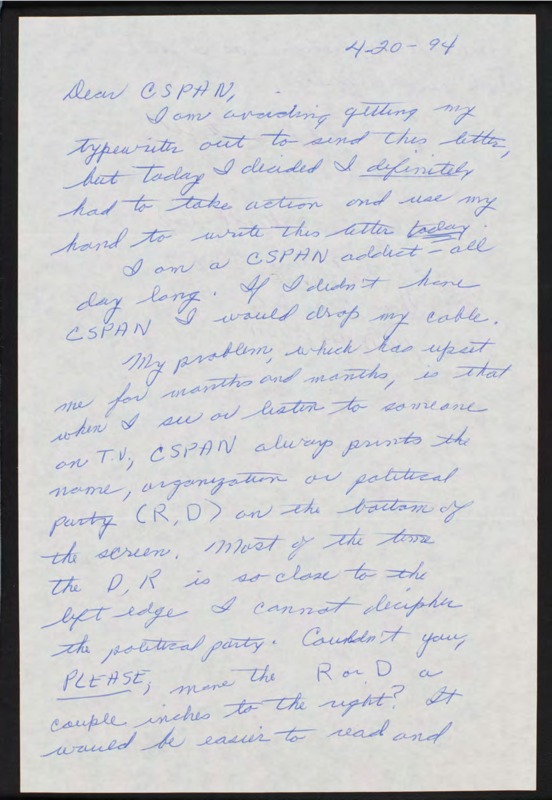 4-20-94
Dear CSPAN,
I am avoiding getting my
typewriter out to send this letter,
but today I decided I definitely
had to take action and use my
hand to write this letter today.
I am a CSPAN addict - all
day long. If I didn't have
CSPAN I would drop my cable.
My problem, which has upset
me for months and months, is that
when I see or listen to someone
on T.V., CSPAN always prints the
name, organization or political
party (R, D) on the bottom of
the screen. Most of the time
the D, R is so close to the
left edge I cannot decipher
the political party. Couldn't you,
PLEASE, move the R or D a
couple inches to the right? It
would be easier to read and